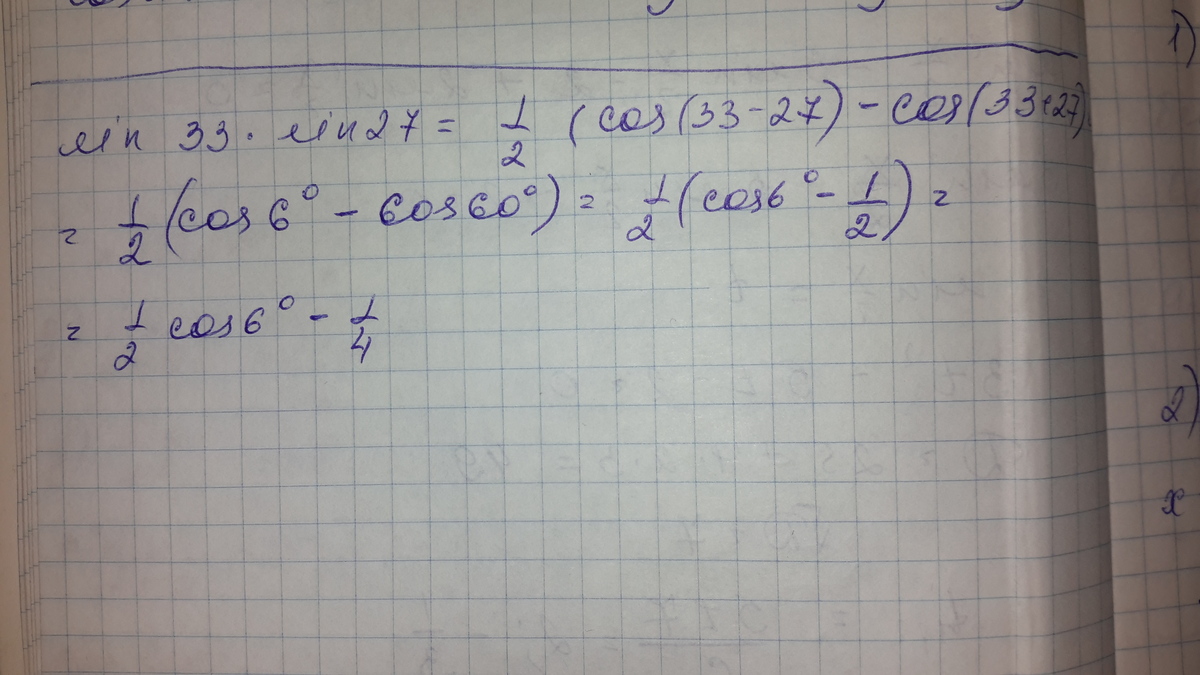 sin 33 · sin 27 = 1/2 (cos(33-27) - cos(33+27)
= 1/2 (cos 6° - cos 60°) = 1/2 (cos 6° - 1/2) =
= 1/2 cos 6° - 1/4
1)
2)
x